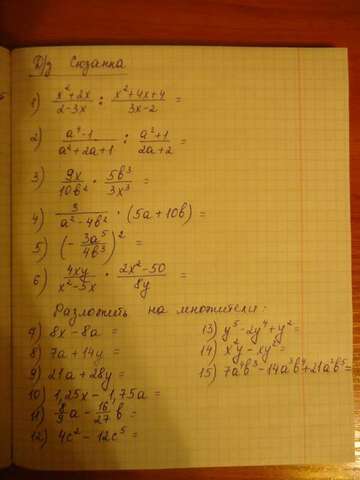 Д/з Сюзанка
1) (x²+2x)/(2-3x) : (x²+4x+4)/(3x-2) =
2) (a⁴-1)/(a²+2a+1) : (a²+1)/(2a+2) =
3) 9x/10b² · 5b³/3x³ =
4) 3/(a²-4b²) · (5a+10b) =
5) (-3a⁵/4b³)² =
6) 4xy/(x²-5x) · (2x²-50)/8y =
Разложить на множители:
7) 8x-8a =
8) 7a+14y =
9) 21a+28y =
10) 1,25x-1,75a =
11) 8/9a-16/27b =
12) 4c²-12c⁵ =
13) y⁵-2y⁴+y² =
14) x²y-xy² =
15) 7a⁴b³-14a³b⁴+21a²b⁵ =